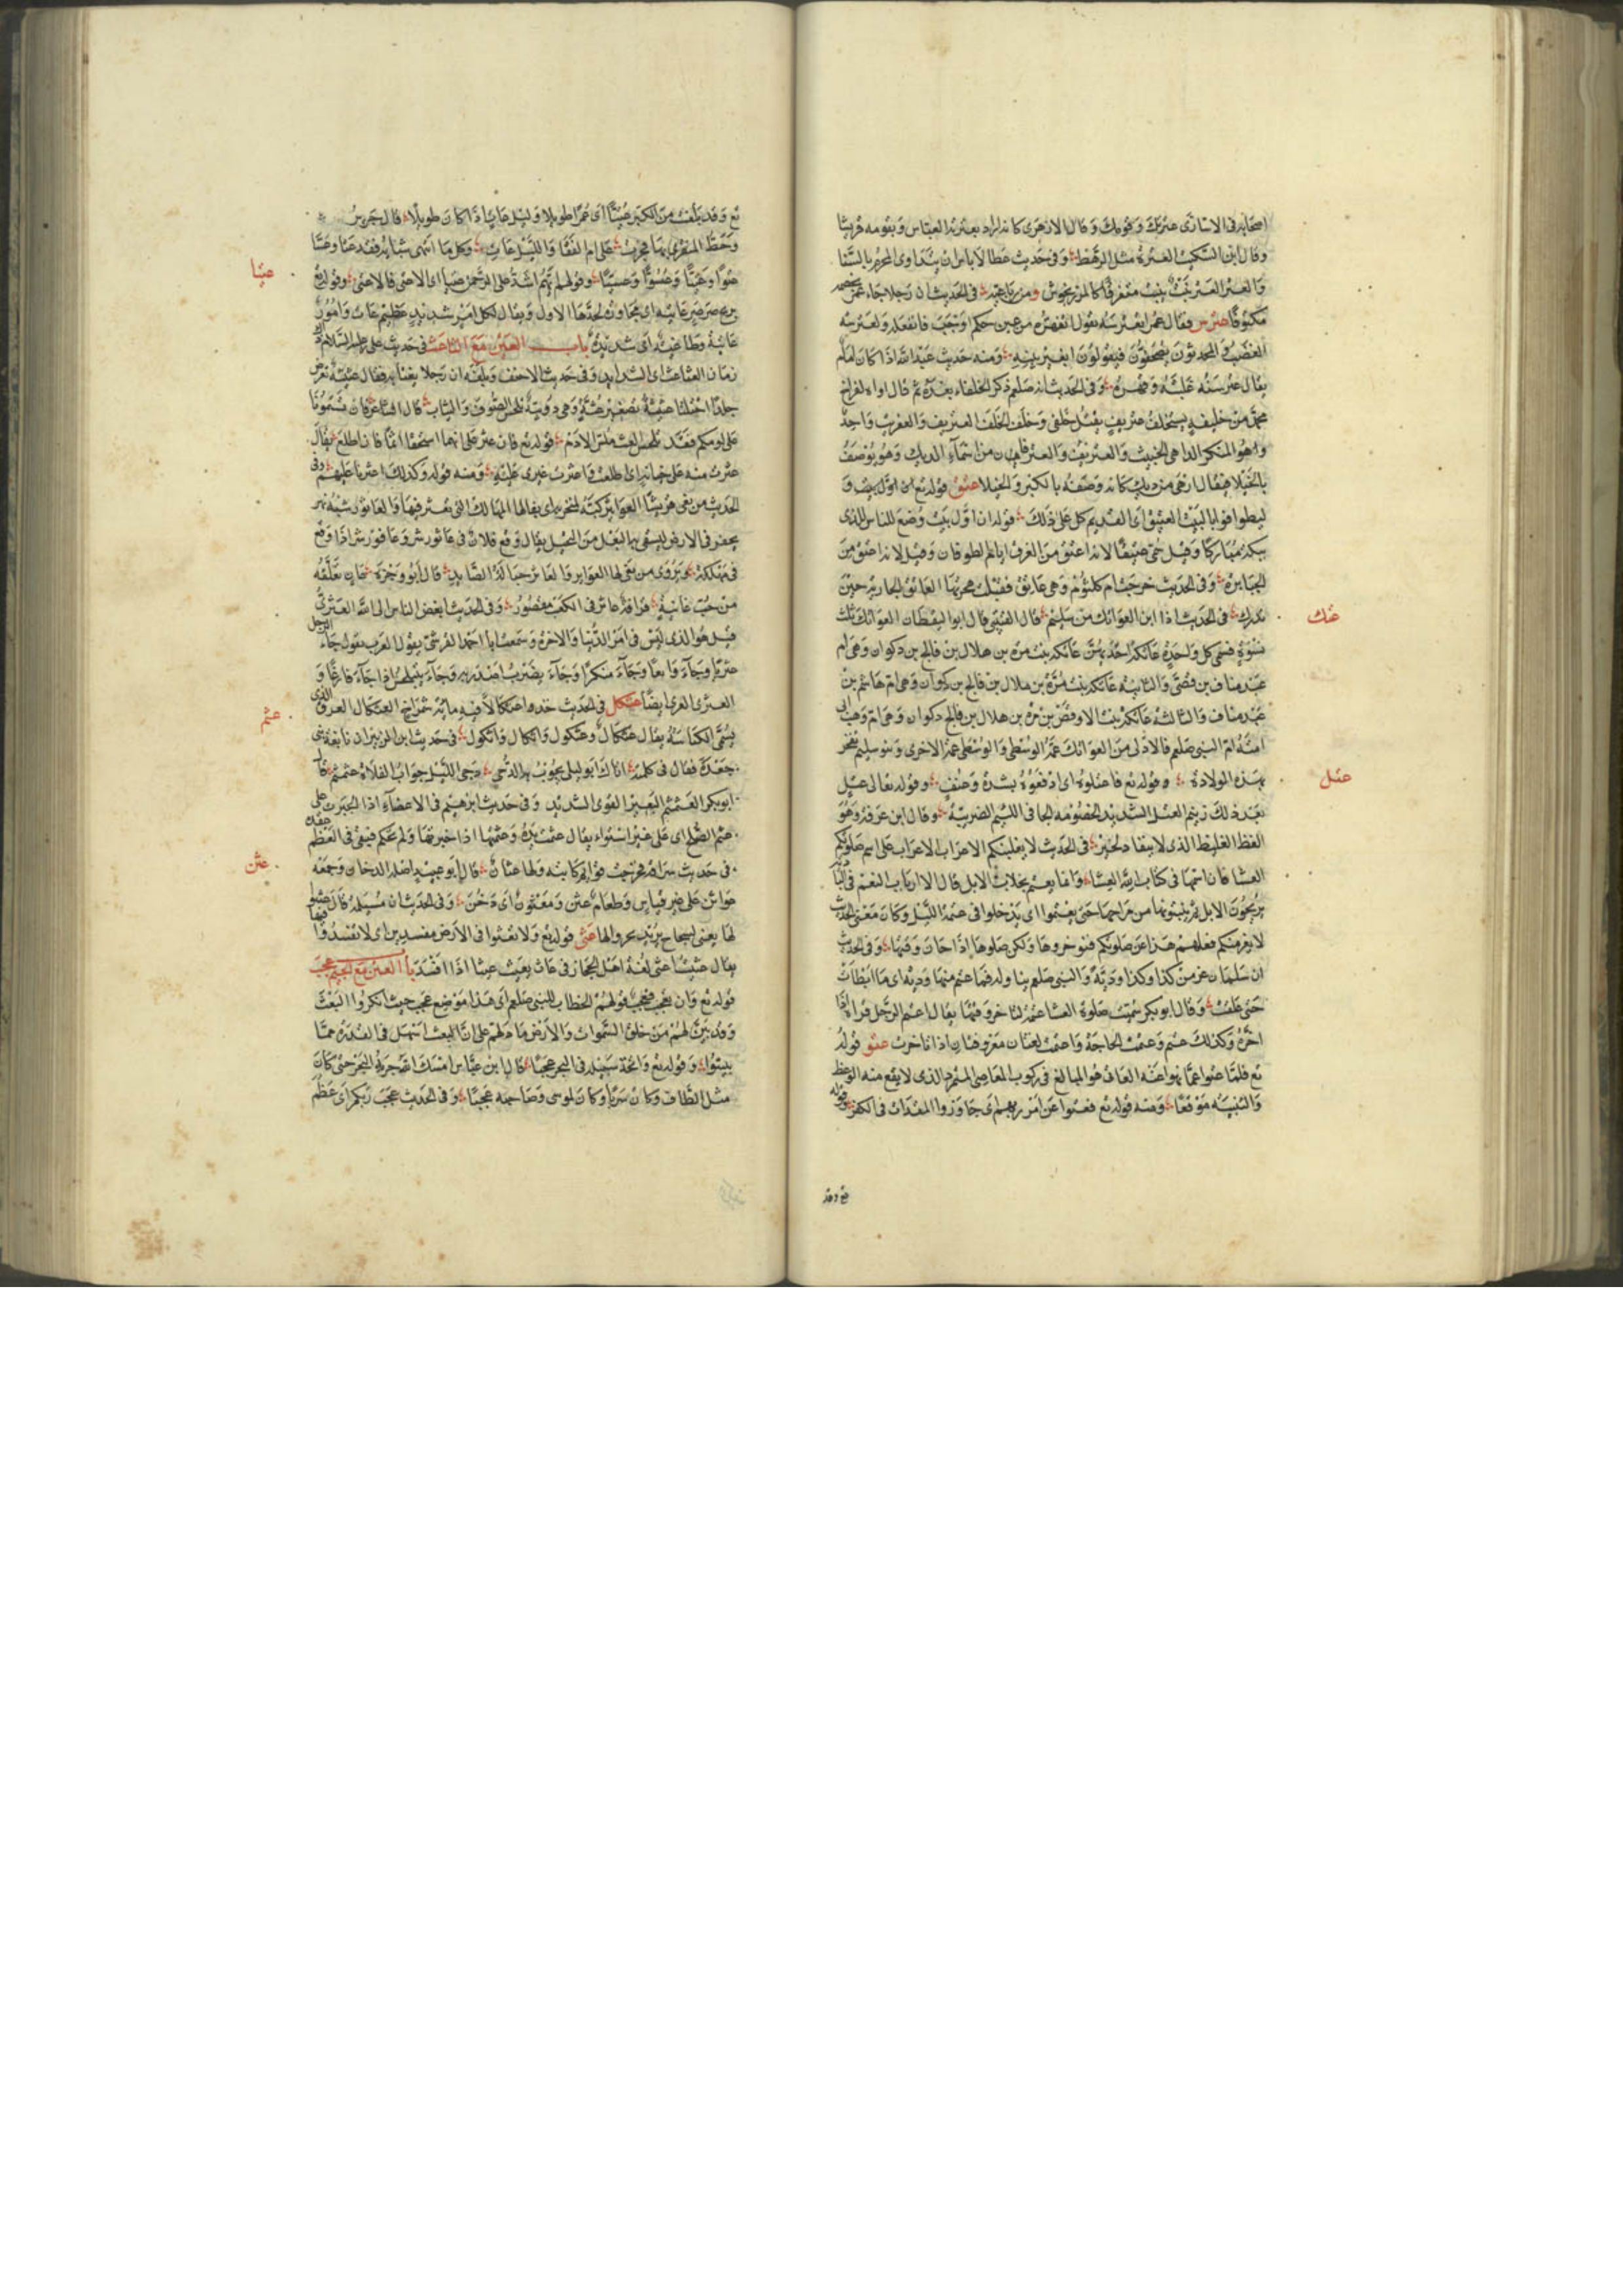 اصحابه فى الاسارى عترتك وقومك وقال الازهرى كانه اراد بعترته العباس وبقومه قريشا
وقال ابن السكيت العترة مثل الرهط وفى حديث عطا لا باس ان يتداوى المحرم بالسنا
والعتر العتر نبت ينبت متفرقا كالمرزنجوش فى الحديث ان رجلا جاء عمر بخصمه
مكتوفا عترس فقال عمر اتعترسه يقول اتقهره من غير حكم اوجب
الغضب والمحدثون يصحفون فيقولون ابغير بينه ومنه حديث عبد الله اذا كان امام
يقال عترسته غلبته وقهرته وفى الحديث انه صلعم ذكر الخلفاء بعده ثم قال اواه لفراخ
محمد من خليفه يستخلف عتريف يقتل خلفى وخلف الخلف العتريف والعفريت واحد
وهو المنكر الداهى الخبيث والعتريف والعترفان من اسماء الديك وهو يوصف
بالخيلا فيقال ازهى من ديك كانه وصفه بالكبر والخيلا عتق قوله تع ان اول بيت و
ليطوفوا بالبيت العتيق اى القديم كل على ذلك قوله ان اول بيت وضع للناس للذى
ببكة مباركا وقيل سمى عتيقا لانه اعتق من الغرق ايام الطوفان وقيل لانه اعتق من
الجبابره وفى الحديث خرجت ام كلثوم وهى عاتق فقبلت هجرتها العاتق الجاريه حين
تدرك فى الحديث انا ابن العواتك من سليم قال القتيبى قال ابو اليقظان العواتك ثلث
عتك
نسوة تسمى كل واحدة عاتكه احدهن عاتكه بنت مره بن هلال بن فالج بن ذكوان وهى ام
عبد مناف بن قصى والثانيه عاتكه بنت مرة بن هلال بن فالج بن ذكوان وهى ام هاشم بن
عبد مناف والثالثه عاتكه بنت الاوقص بن مرة بن هلال بن فالج ذكوان وهى ام وهب ابى
امنة ام النبى صلعم فالاولى من العواتك عمة الوسطى والوسطى عمة الاخرى وبنو سليم تفخر
بهذه الولادة وقوله تع فاعتلوه اى ادفعوه بشدة وعنف وقوله تعالى عتل
عتل
بعد ذلك زنيم العتل الشديد الخصومه الجافى اللئيم الضريبة وقال ابن عرفه وهو
الفظ الغليظ الذى لا ينقاد لخير فى الحديث لا يغلبنكم الاعراب على اسم صلوتكم
العشا فان اسمها فى كتاب الله العشا وانما يعتم بحلاب الابل قال ارباب النعم فى البا
يريحون الابل ثم ينيخونها من مراحها حتى يعتموا اى يدخلوا فى عتمة الليل وكان معنى الحديث
لا يغرنكم فعلهم هذا عن صلوتكم فتوخروها ولكن صلوها اذا حان وقتها وفى الحديث
ان سلمان غرس كذا وكذا ودية والنبى صلعم يناوله فما عتم منها ودية اى ما ابطات
حتى علقت وقال ابو بكر سميت صلوة العشا عتمة لتاخر وقتها يقال اعتم الرجل قراه اذا
اخره وكذلك عتم وعتمت الحاجة واعتمت لغتان معروفتان اذا تاخرت عتو قوله
تع فلما عتوا عما نهوا عنه العاتى هو المبالغ فى ركوب المعاصى المتمرد الذى لا يقع منه الوعظ
والتنبيه موقعا ومنه قوله تع فعتوا عن امر ربهم اى جاوزوا المقدار فى الكفر وقوله
تع وقد
تع وقد بلغت من الكبر عتيا اى عمرا طويلا وليل عات اذا كان طويلا قال جرير
وحط المنقرى بها فخرت على ام القفا والليل عات وكل ما انتهى شبابه فقد عتا وعسا
عتوا وعتيا وعسوا وعسيا وقوله ايهم اشد على الرحمن عتيا اى الاعتى فالاعتى وقوله تع
عتيا
بريح صرصر عاتيه اى مجاوزة لحدها الاول ويقال لكل امر شديد عظيم عات وامور
عاتية وطاغية اى شديدة باب العين مع الثا عث فى حديث على عليه السلام
زمان العثاعث اى الشدايد وفى حديث الاحنف وبلغه ان رجلا يغتابه فقال عثيثة تقرض
جلدا املسا عثيثة تصغير عثة وهى دويبة تلحس الصوف والثياب قال الشاعر فان تشتمونا
على لومكم فقد تلحس العث ملس الادم قوله تع فان عثر على انهما استحقا اثما فان اطلع يقال
عثرت منه على خيانه اى اطلعت واعثرت غيرى عليه ومنه قوله وكذلك اعثرنا عليهم وفى
الحديث من بغى قريشا العواثر كبه لمنخريه
يحفر فى الارض ليسقى بها البعل من النخيل يقال وقع فلان فى عاثور شر وعافور شر اذا وقع
فى مهلكة ويروى من بغى لها العواثر والعاثر حبالة الصايد قال ابو وجزة
وفى الحديث ابغض الناس الى الله العثرى
قيل هو الذى ليس فى امر الدنيا والاخرة وسمعت ابا احمد القرشى يقول العرب تقول جاء الرجل
عثريا وجاء رايعا وجاء منكرا وجاء يضرب اصدريه وجاء يتبلحس اذا جاء فارغا و
العثرى العذى ايضا عثكل فى الحديث خذوا عثكالا فيه مائة شمراخ العثكال العذق الذى
يسمى الكباسة يقال عثكال وعثكول واثكال واثكول فى حديث ابن الزبير ان نابغة بنى
عثم
جعدة فقال فى كلمته اتاك ابو ليلى يجوب به الدجى دجى الليل جواب الفلاة عثمثم قال
ابو بكر العثمثم البعير القوى الشديد وفى حديث ابرهيم فى الاعضاء اذا انجبرت على
عثم الصلح اى على غير استواء يقال عثمت يده وعثمتها اذا جبرتها ولم تحكم فبقى فى العظم عقد
فى حديث سراقة فخرجت قوائم دابته ولها عثان قال ابو عبيد اصله الدخان وجمعه
عثن
عواثن على غير قياس وطعام عثن ومعثون اى دخن وفى الحديث ان مسيلمه قال عثنوا
لها يعنى لسجاح يريد بخروا لها عثى قوله تع ولا تعثوا فى الارض مفسدين اى لا تفسدوا فيها
يقال عثى يعثى لغة اهل الحجاز فى عاث يعيث عيثا اذا افسد باب العين مع الجيم عجب
قوله تع وان تعجب فعجب قولهم الخطاب للنبى صلعم اى هذا موضع عجب حيث انكروا البعث
وقد بين لهم من خلق السموات والارض ما دلهم على ان البعث اسهل فى القدرة مما
بينوا وقوله تع واتخذ سبيله فى البحر عجبا قال ابن عباس امسك الله جرية البحر حتى كان
مثل الطاق وكان سربا وكان لموسى وصاحبه عجبا وفى الحديث عجب ربكم اى عظم